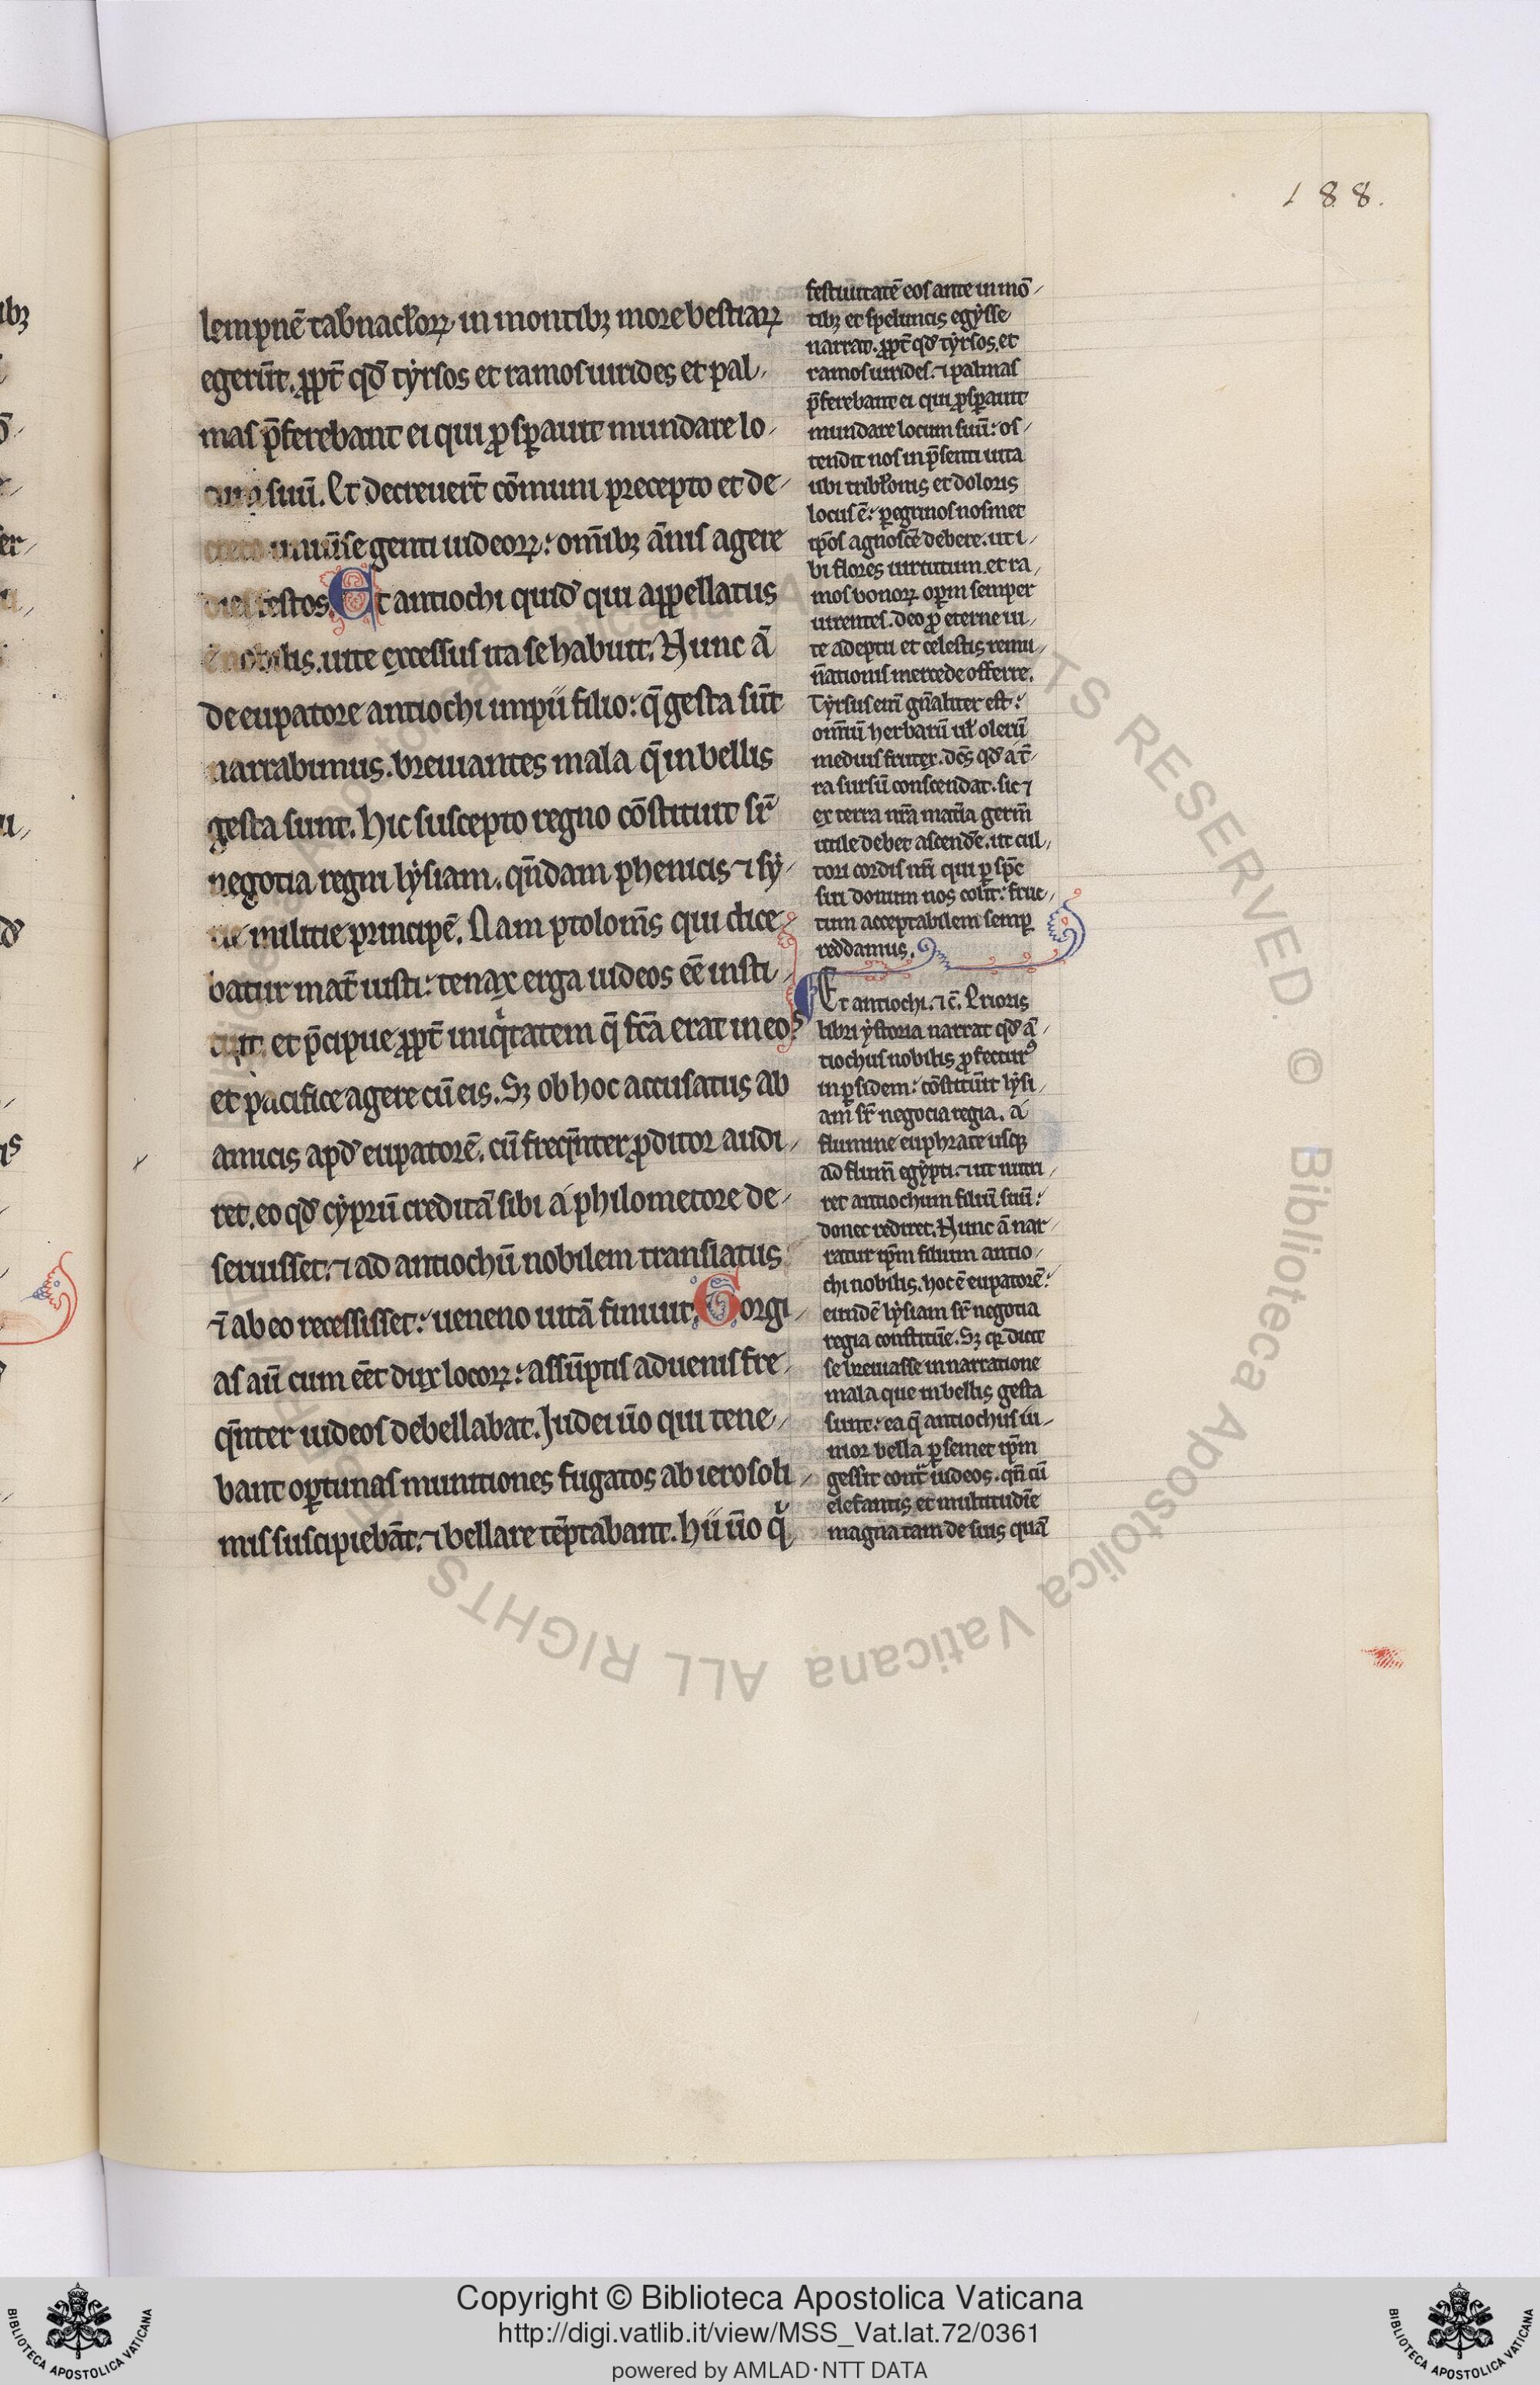 188.
lempnē tab̄nacl̄oꝝ in montibꝫ more bestiaꝝ
egerūt. ꝓpt̄ qd̄ tẏrsos et ramos uirides et pal
mas p̄ferebant ei qui ꝓsꝑauit mundare lo
suū. Et decreuer̄t cōmuni precepto et de
uniūse genti iudeoꝝ: om̄ibꝫ ānis agere
dies festos Et antiochi quid̄ qui appellatus
ē nobilis. uite excessus ita se habuit. Nunc ā
de eupatore antiochi impii filio: q̄ gesta sūt
narrabimus. breuiantes mala q̄ in bellis
gesta sunt. Hic suscepto regno cōstituit sr̄
negotia regni lẏsiam. qn̄dam phenicis ⁊ sẏ
rie militie principē. Nam ptolom̄s qui dice
batur mac̄ iusti: tenax erga iudeos ēē insti
tuit et p̄cipue ꝓpt̄ iniqͥtatem q̄ fc̄a erat in eos
et pacifice agere cū eis. Sꝫ ob hoc accusatus ab
amicis apd̄ eupatorē. cū freqn̄ter ꝓditor audi
ret. eo qd̄ cẏprū creditā sibi a philometore de
seruisset: ⁊ ad antiochū nobilem translatus
⁊̄ ab eo recessisset: ueneno uitā finiuit. Gorgi
as aū cum eēt dux locoꝝ: assūptis aduenis fre
qn̄ter iudeos debellabat. Iudei ūo qui tene
bant oꝑtunas munitiones fugatos ab ierosoli
mis suscipiebāt: ⁊ bellare tēptabant. Hii ūo q̆
festiuitatē eos ante in mō
tibꝫ et speluncis egẏsse
narrat. ꝓpt̄ qd̄ tẏrsos. et
ramos uirides. ⁊ palmas
p̄ferebant ei qui ꝓsꝑauit
mundare locum suū: os
tendit nos in p̄senti uita
ubi tribl̄onis et doloris
locus ē: ꝑegrinos nosmet
ip̄os agnosc̄e debere. ut i
bi flores uirtutum et ra
mos bonoꝝ oꝑm semper
uirentes. deo ꝓ eterne ui
te adeptu et celestis remu
n̄ationis mercede offerre.
Tẏrsus eni gn̄aliter est:
om̄iū herbarū ul̄ olerū
medius frutex. dc̄s qd̄ a t̄
ra sursū conscendat. sic ⁊
ex terra nr̄a mat̄ia germ̄
utile debet ascend̄e. ut cul
tori cordis nr̄i qui ꝑ spc̄
sui donum nos colit: fruc
tum acceptabilem semꝑ
reddamus.
Et antiochi. ⁊ c̄. Prioris
libri ẏstoria narrat qd̄ ā
tiochus nobilis ꝓfecturꝰ
in ꝑsidem: cōstituit lẏsi
am sr̄ negocia regia. a
flumine euphrate usqꝫ
ad flum̄ egẏpti. ⁊ ut nutri
ret antiochum filiū suū:
donec rediret. Nunc ā nar
ratur ip̄m filium antio
chi nobilis. hoc ē eupatorē:
eundē lẏsiam sr̄ negotia
regia constituīe. Sꝫ qꝛ dicit
se breuiasse in narratione
mala que in bellis gesta
sunt: ea q̄ antiochus iu
nior bella ꝑ semet ip̄m
gessit cont̄ iudeos. qn̄ cū
elefantis et multitudīe
magna tam de suis quā
Copyright © Biblioteca Apostolica Vaticana
http://digi.vatlib.it/view/MSS_Vat.lat.72/0361
powered by AMLAD·NTT DATA